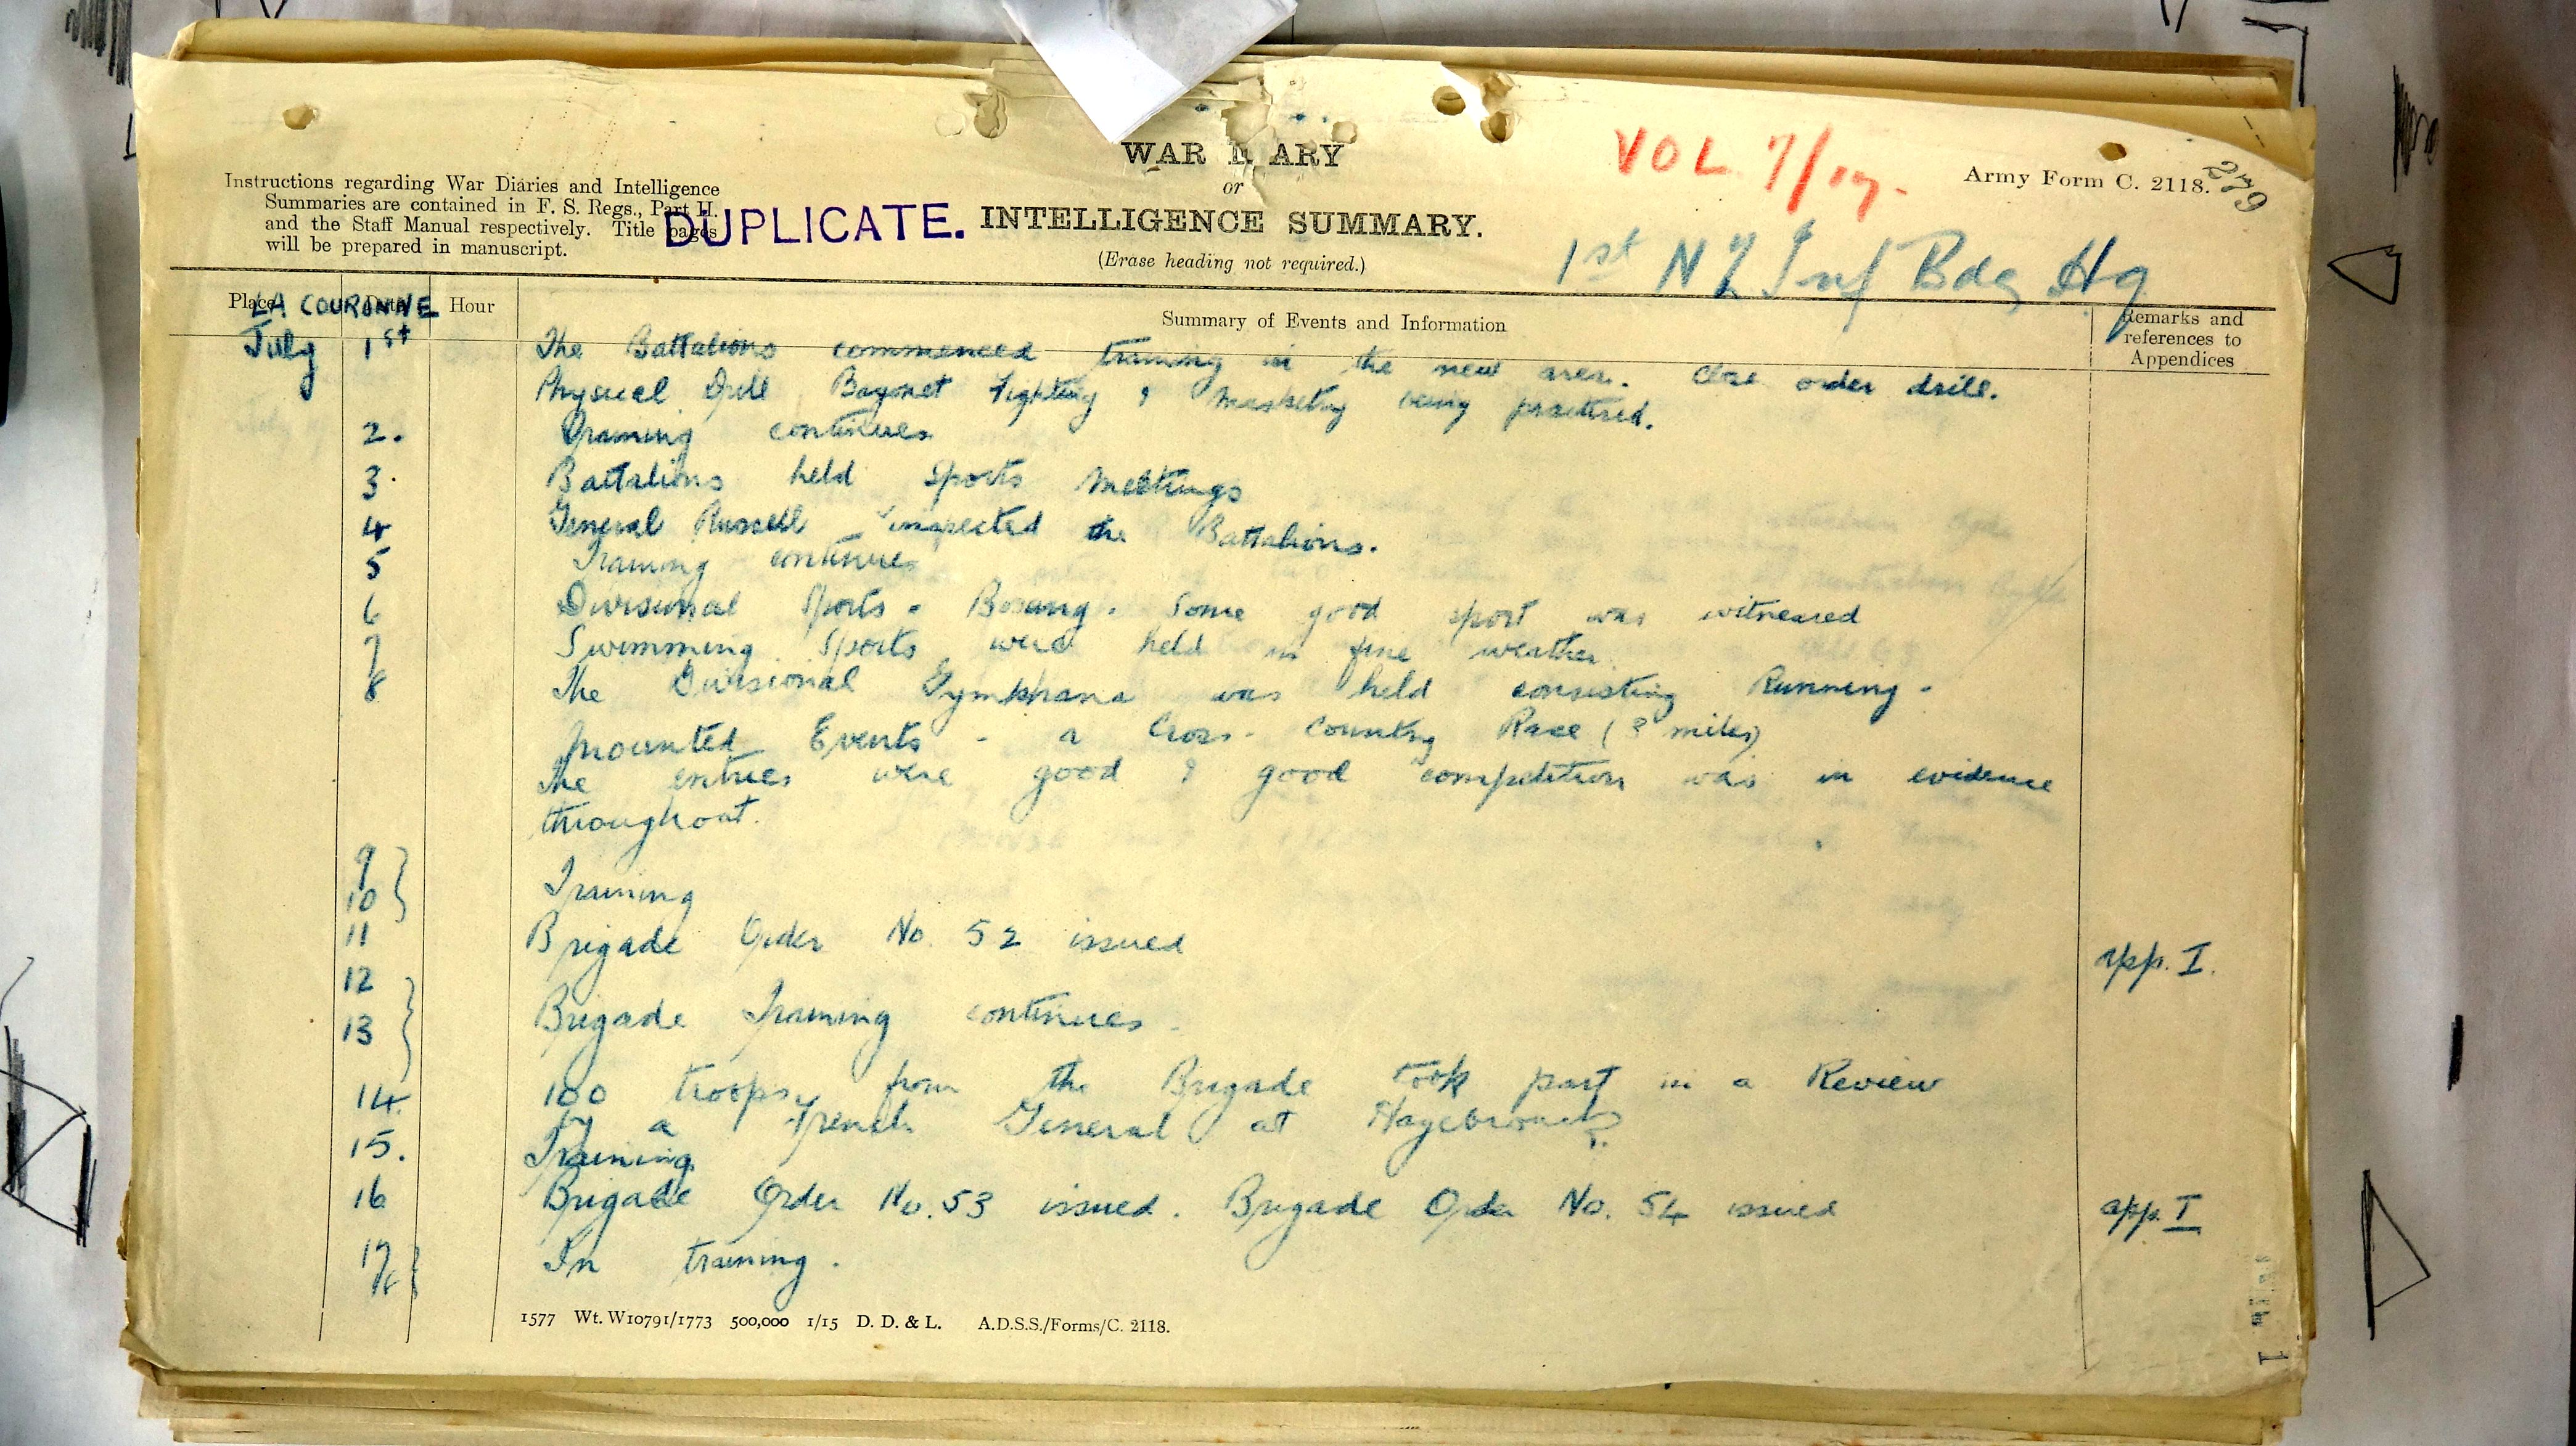 WAR DIARY
or
INTELLIGENCE SUMMARY.
(Erase heading not required.)
Instructions regarding War Diaries and Intelligence
Summaries are contained in F. S. Regs., Part II.
and the Staff Manual respectively. Title pages
will be prepared in manuscript.
DUPLICATE.
VOL 7/17.
Army Form C. 2118.
279
1st NZ Inf Bde Hq
Place Date Hour
LA COURONNE
Summary of Events and Information
Remarks and
references to
Appendices
July 1st The Battalions commenced training in the new area. Close order drill.
Physical Drill Bayonet Fighting & Musketry being practised.
2. Training continues
3. Battalions held Sports Meetings
4 General Russell inspected the Battalions.
5 Training continues
6 Divisional Sports - Boxing. Some good sport was witnessed
7 Swimming Sports were held in fine weather
8 The Divisional Gymkhana was held consisting Running -
Mounted Events - a Cross-Country Race (3 miles)
The entries were good & good competition was in evidence
throughout.
9
10 Training
11 Brigade Order No. 52 issued app. I.
12
13 Brigade Training continues -
14 100 troops from the Brigade took part in a Review
by a French General at
15. Training
16 Brigade Order No. 53 issued. Brigade Order No. 54 issued app. I
17 In training.
1577 Wt. W10791/1773 500,000 1/15 D. D. & L. A.D.S.S./Forms/C. 2118.